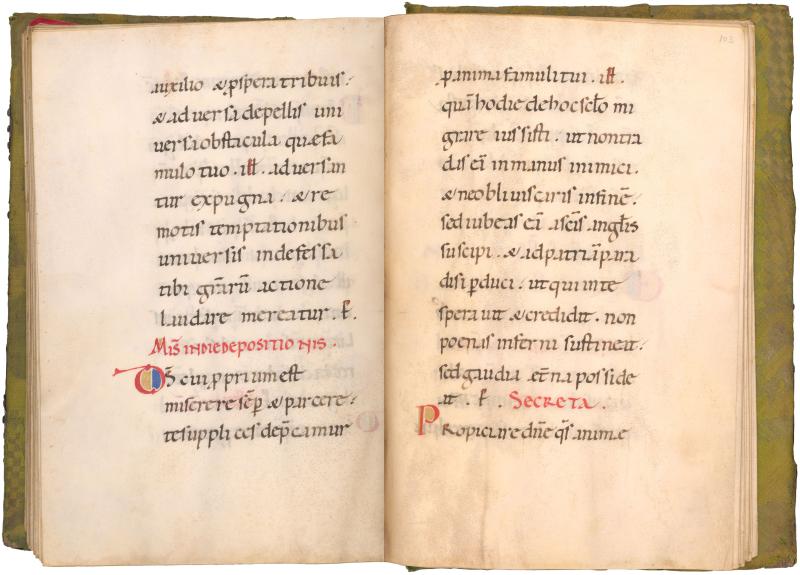 auxilio & ꝓspera tribuis.
& adversa depellis uni
versa obstacula que fa
mulo tuo. ill. adversan
tur expugna. & re
motis temptationibus
universis indefessa
tibi gr̄arū actione
laudare mereatur. ꝑ.
Mis̄ in die depositionis.
Ds̄ cui ꝓprium est
miserere sēp & parcere.
te supplices dep̄camur
ꝑ anima famuli tui. ill.
quā hodie de hoc sclo mi
grare iussisti. ut non tra
das eā in manus inimici.
& ne obliviscaris in finē.
sed iubeas eā a scīs anglis
suscipi. & ad patriā para
disi ꝑduci. ut qui in te
speravit & credidit. non
poenas inferni sustineat.
sed gaudia aet̄na posside
at. ꝑ. Secreta.
Propiciare dn̄e qs̄ anime
103